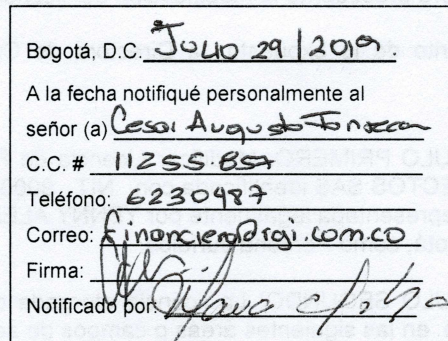 Bogotá, D.C. Julio 29/2019.
A la fecha notifiqué personalmente al
señor (a) Cesar Augusto Fonseca
C.C. # 11255857
Teléfono: 6230987
Correo: financiero@rgi.com.co
Firma:
Notificado por: